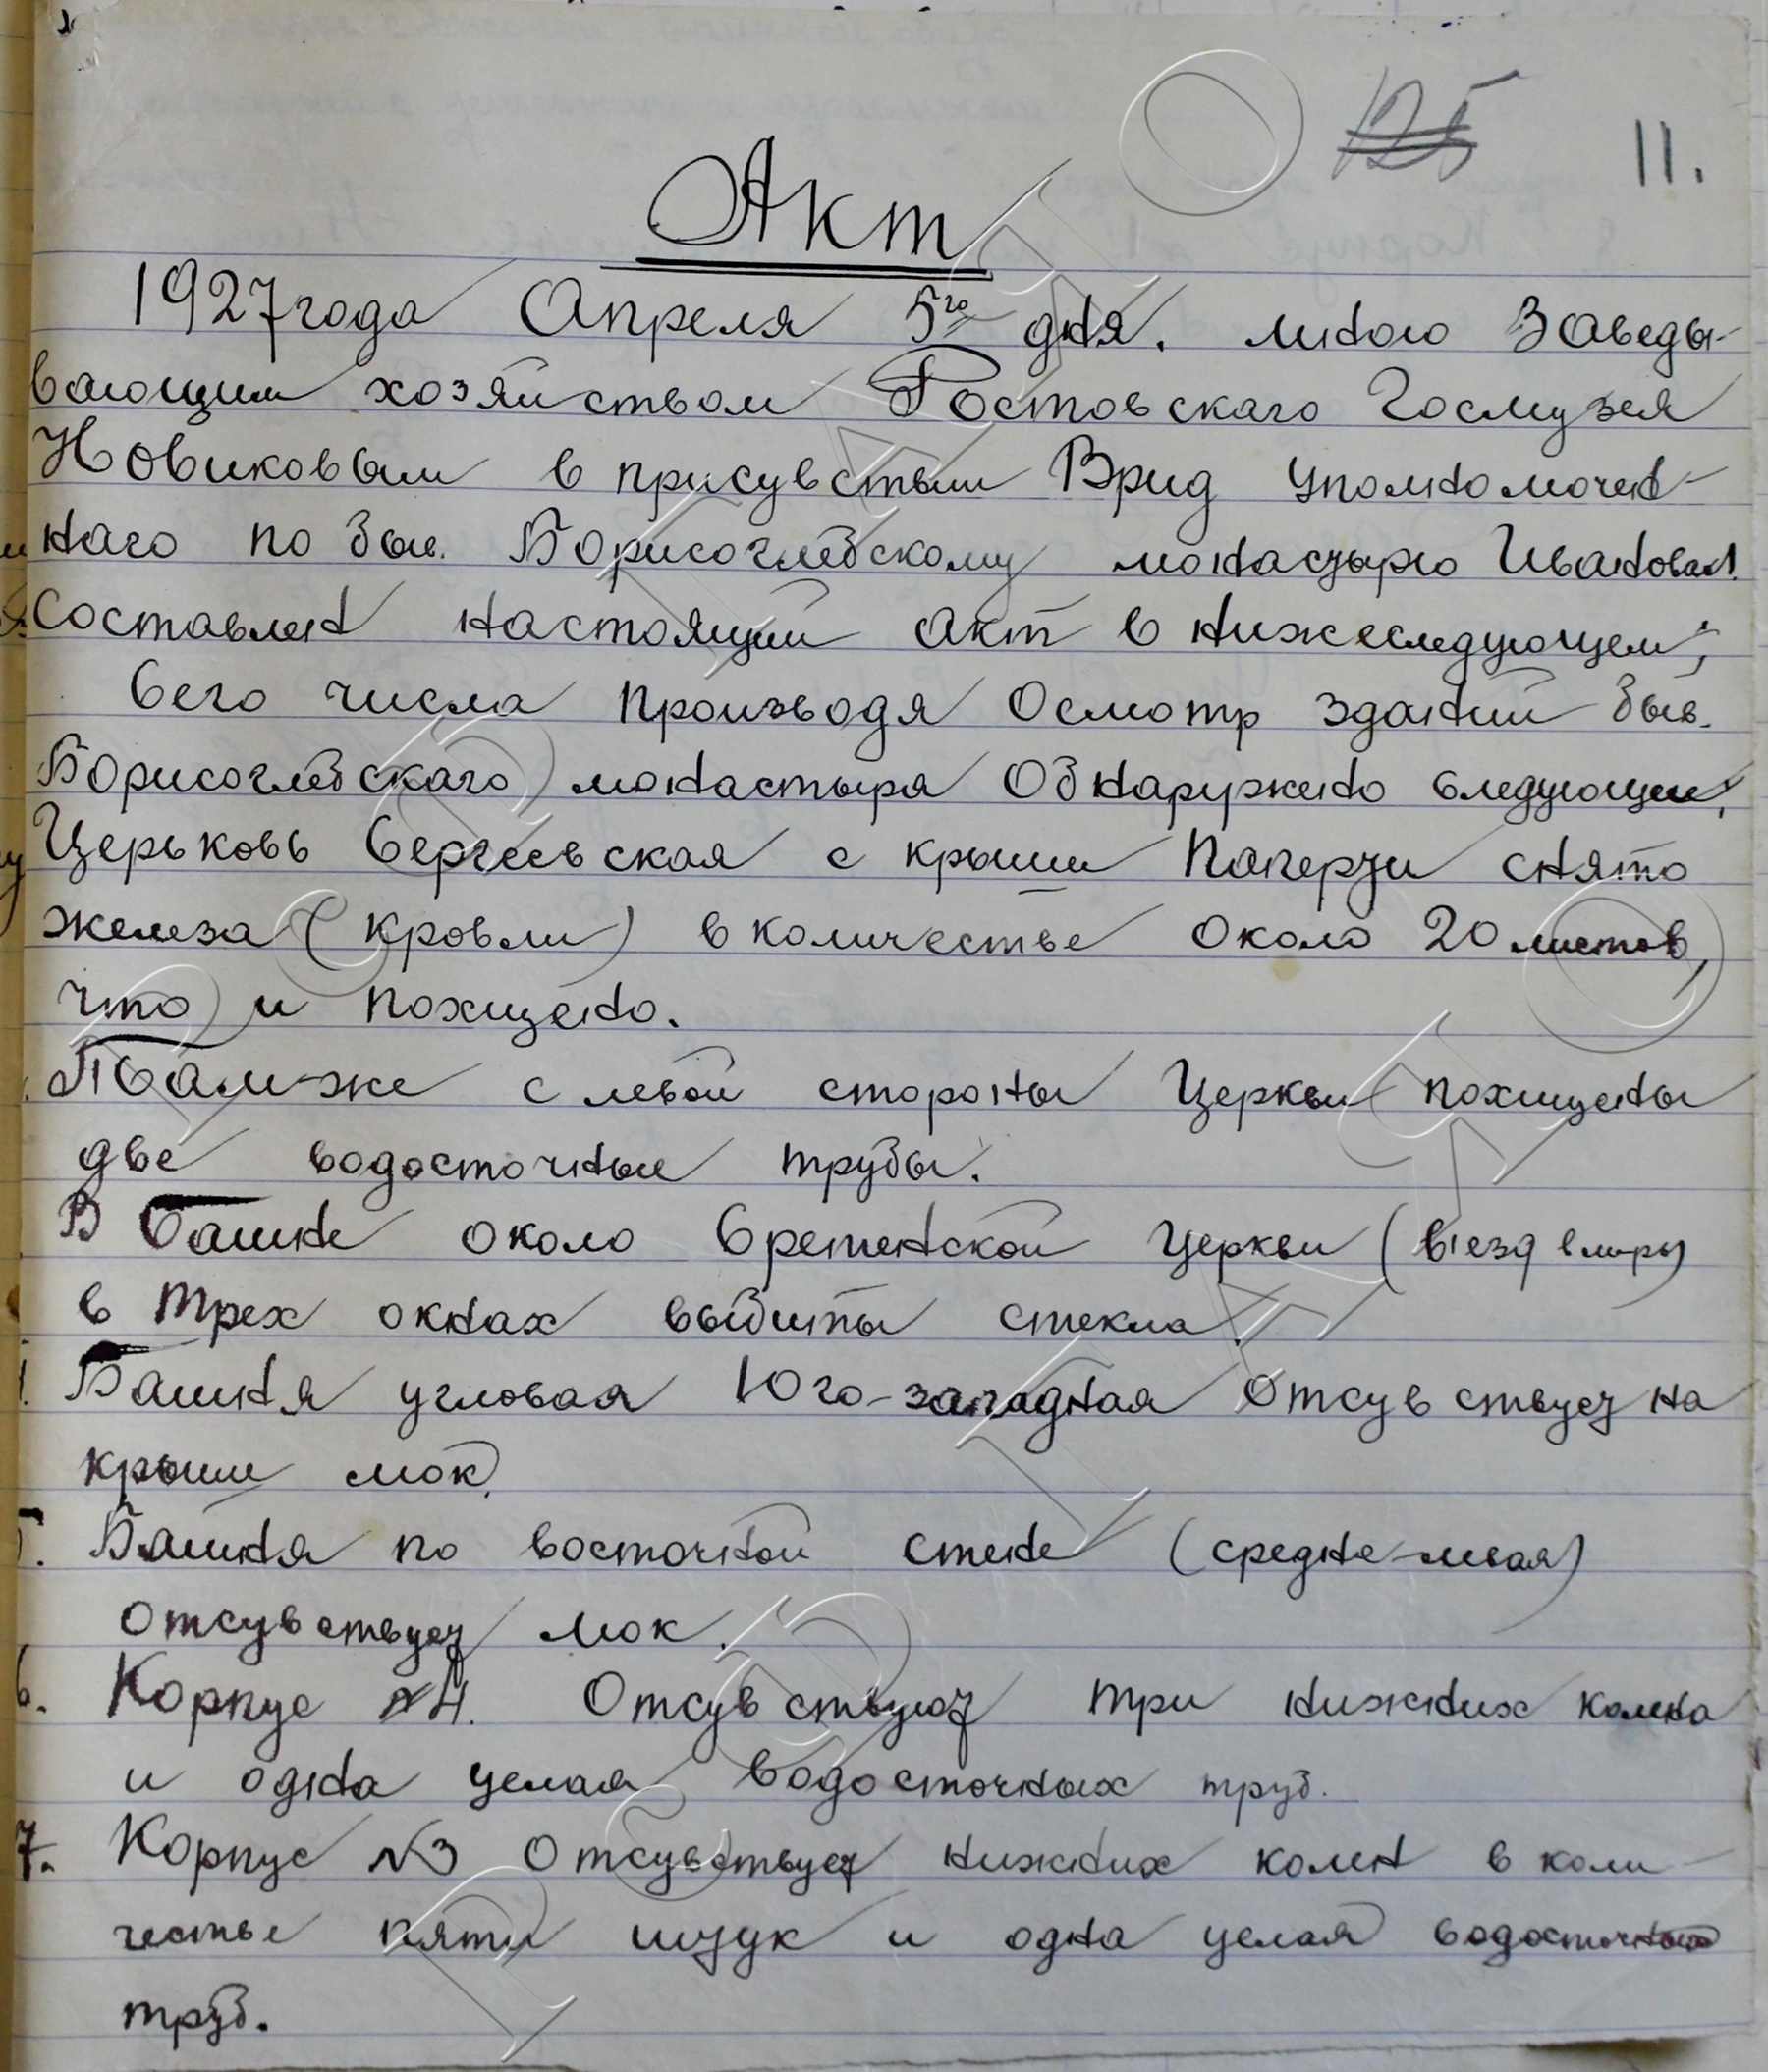 125 11.
Акт
1927 года Апреля 5го дня. мною Заведы-
вающим хозяйством Ростовскаго Госмузея
Новиковым в присувствии Врид уполномочен-
наго по быв. Борисоглебскому монастырю Ивановам.
Составлен настоящий акт в нижеследующем;
Сего числа производя Осмотр зданий быв.
Борисоглебскаго монастыря Обнаружено следующее;
Церьковь Сергеевская с крыши Паперти снято
железа (кровли) в количестве около 20 листов,
что и похищено.
Там-же с левой стороны Церкви похищены
две водосточные трубы.
В башне около Сретенской Церкви (в'езд в
в трех окнах выбиты стекла.
Башня угловая Юго-западная отсувствует на
крыши люк.
5. Башня по восточной стене (средне-левая)
отсувствует люк.
6. Корпус №4. Отсувствуют три нижних колена
и одна целая водосточных труб.
7. Корпус №3 Отсувствует нижних колен в коли-
честве пяти штук и одна целая водосточных
труб.